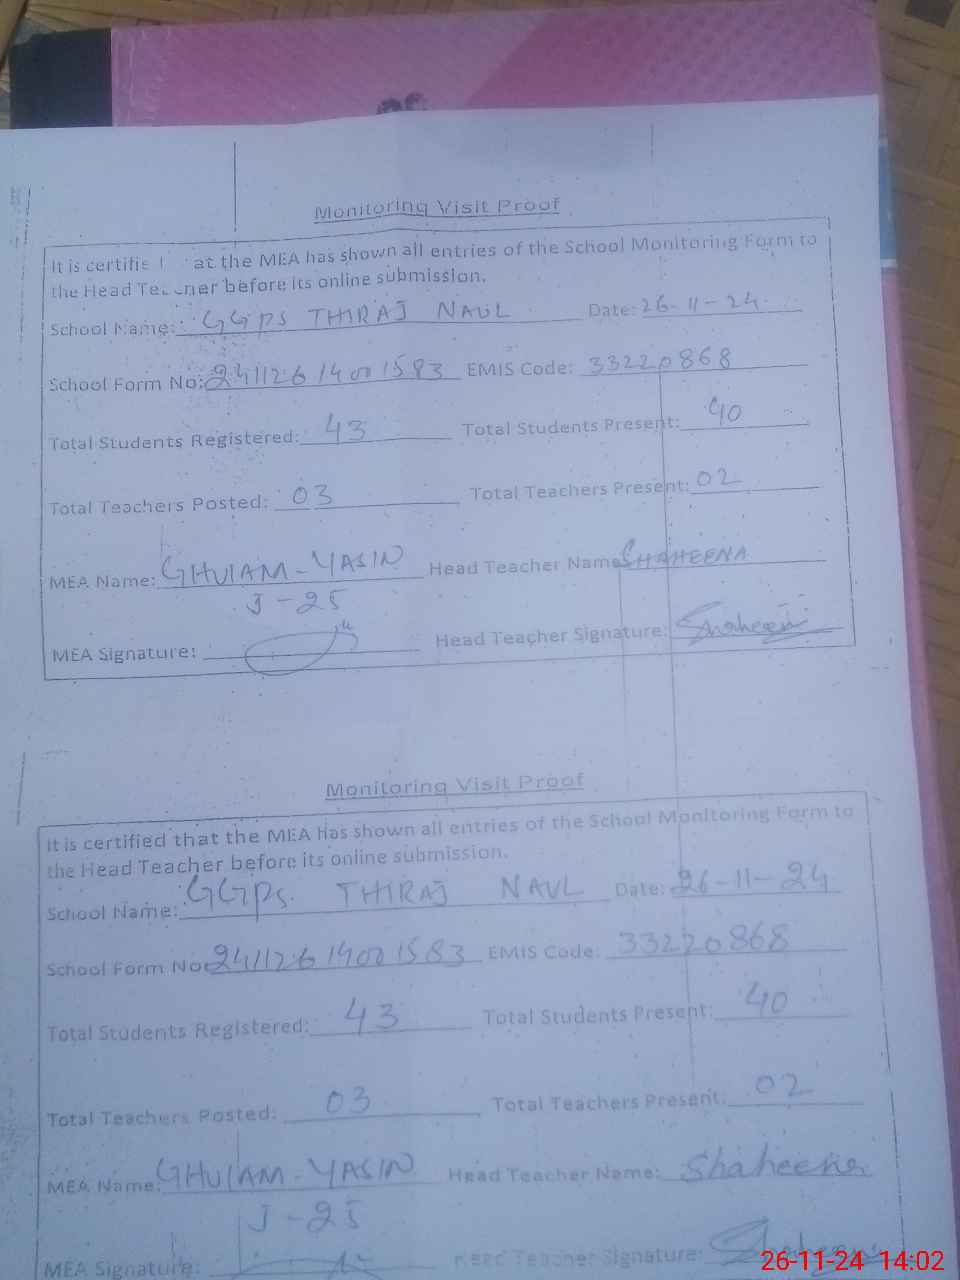 Monitoring Visit Proof
It is certifie at the MEA has shown all entries of the School Monitoring Form to
the Head Teacher before its online submission.
School Name: GGPS THIRAJ NAUL Date: 26-11-24
School Form No: 241126140015 83 EMIS Code: 33220868
Total Students Registered: 43 Total Students Present: 40
Total Teachers Posted: 03 Total Teachers Present: 02
MEA Name: GHULAM-YASIN Head Teacher Name: SHAHEENA
J-25
MEA Signature: Head Teacher Signature: Shaheen
Monitoring Visit Proof
It is certified that the MEA has shown all entries of the School Monitoring Form to
the Head Teacher before its online submission.
School Name: GGPS. THIRAJ NAUL Date: 26-11-24
School Form No: 24112614001583 EMIS Code: 33220868
Total Students Registered: 43 Total Students Present: 40
Total Teachers Posted: 03 Total Teachers Present: 02
MEA Name: GHULAM-YASIN Head Teacher Name: Shaheena
J-25
MEA Signature: Head Teacher Signature: Shaheen
26-11-24 14:02